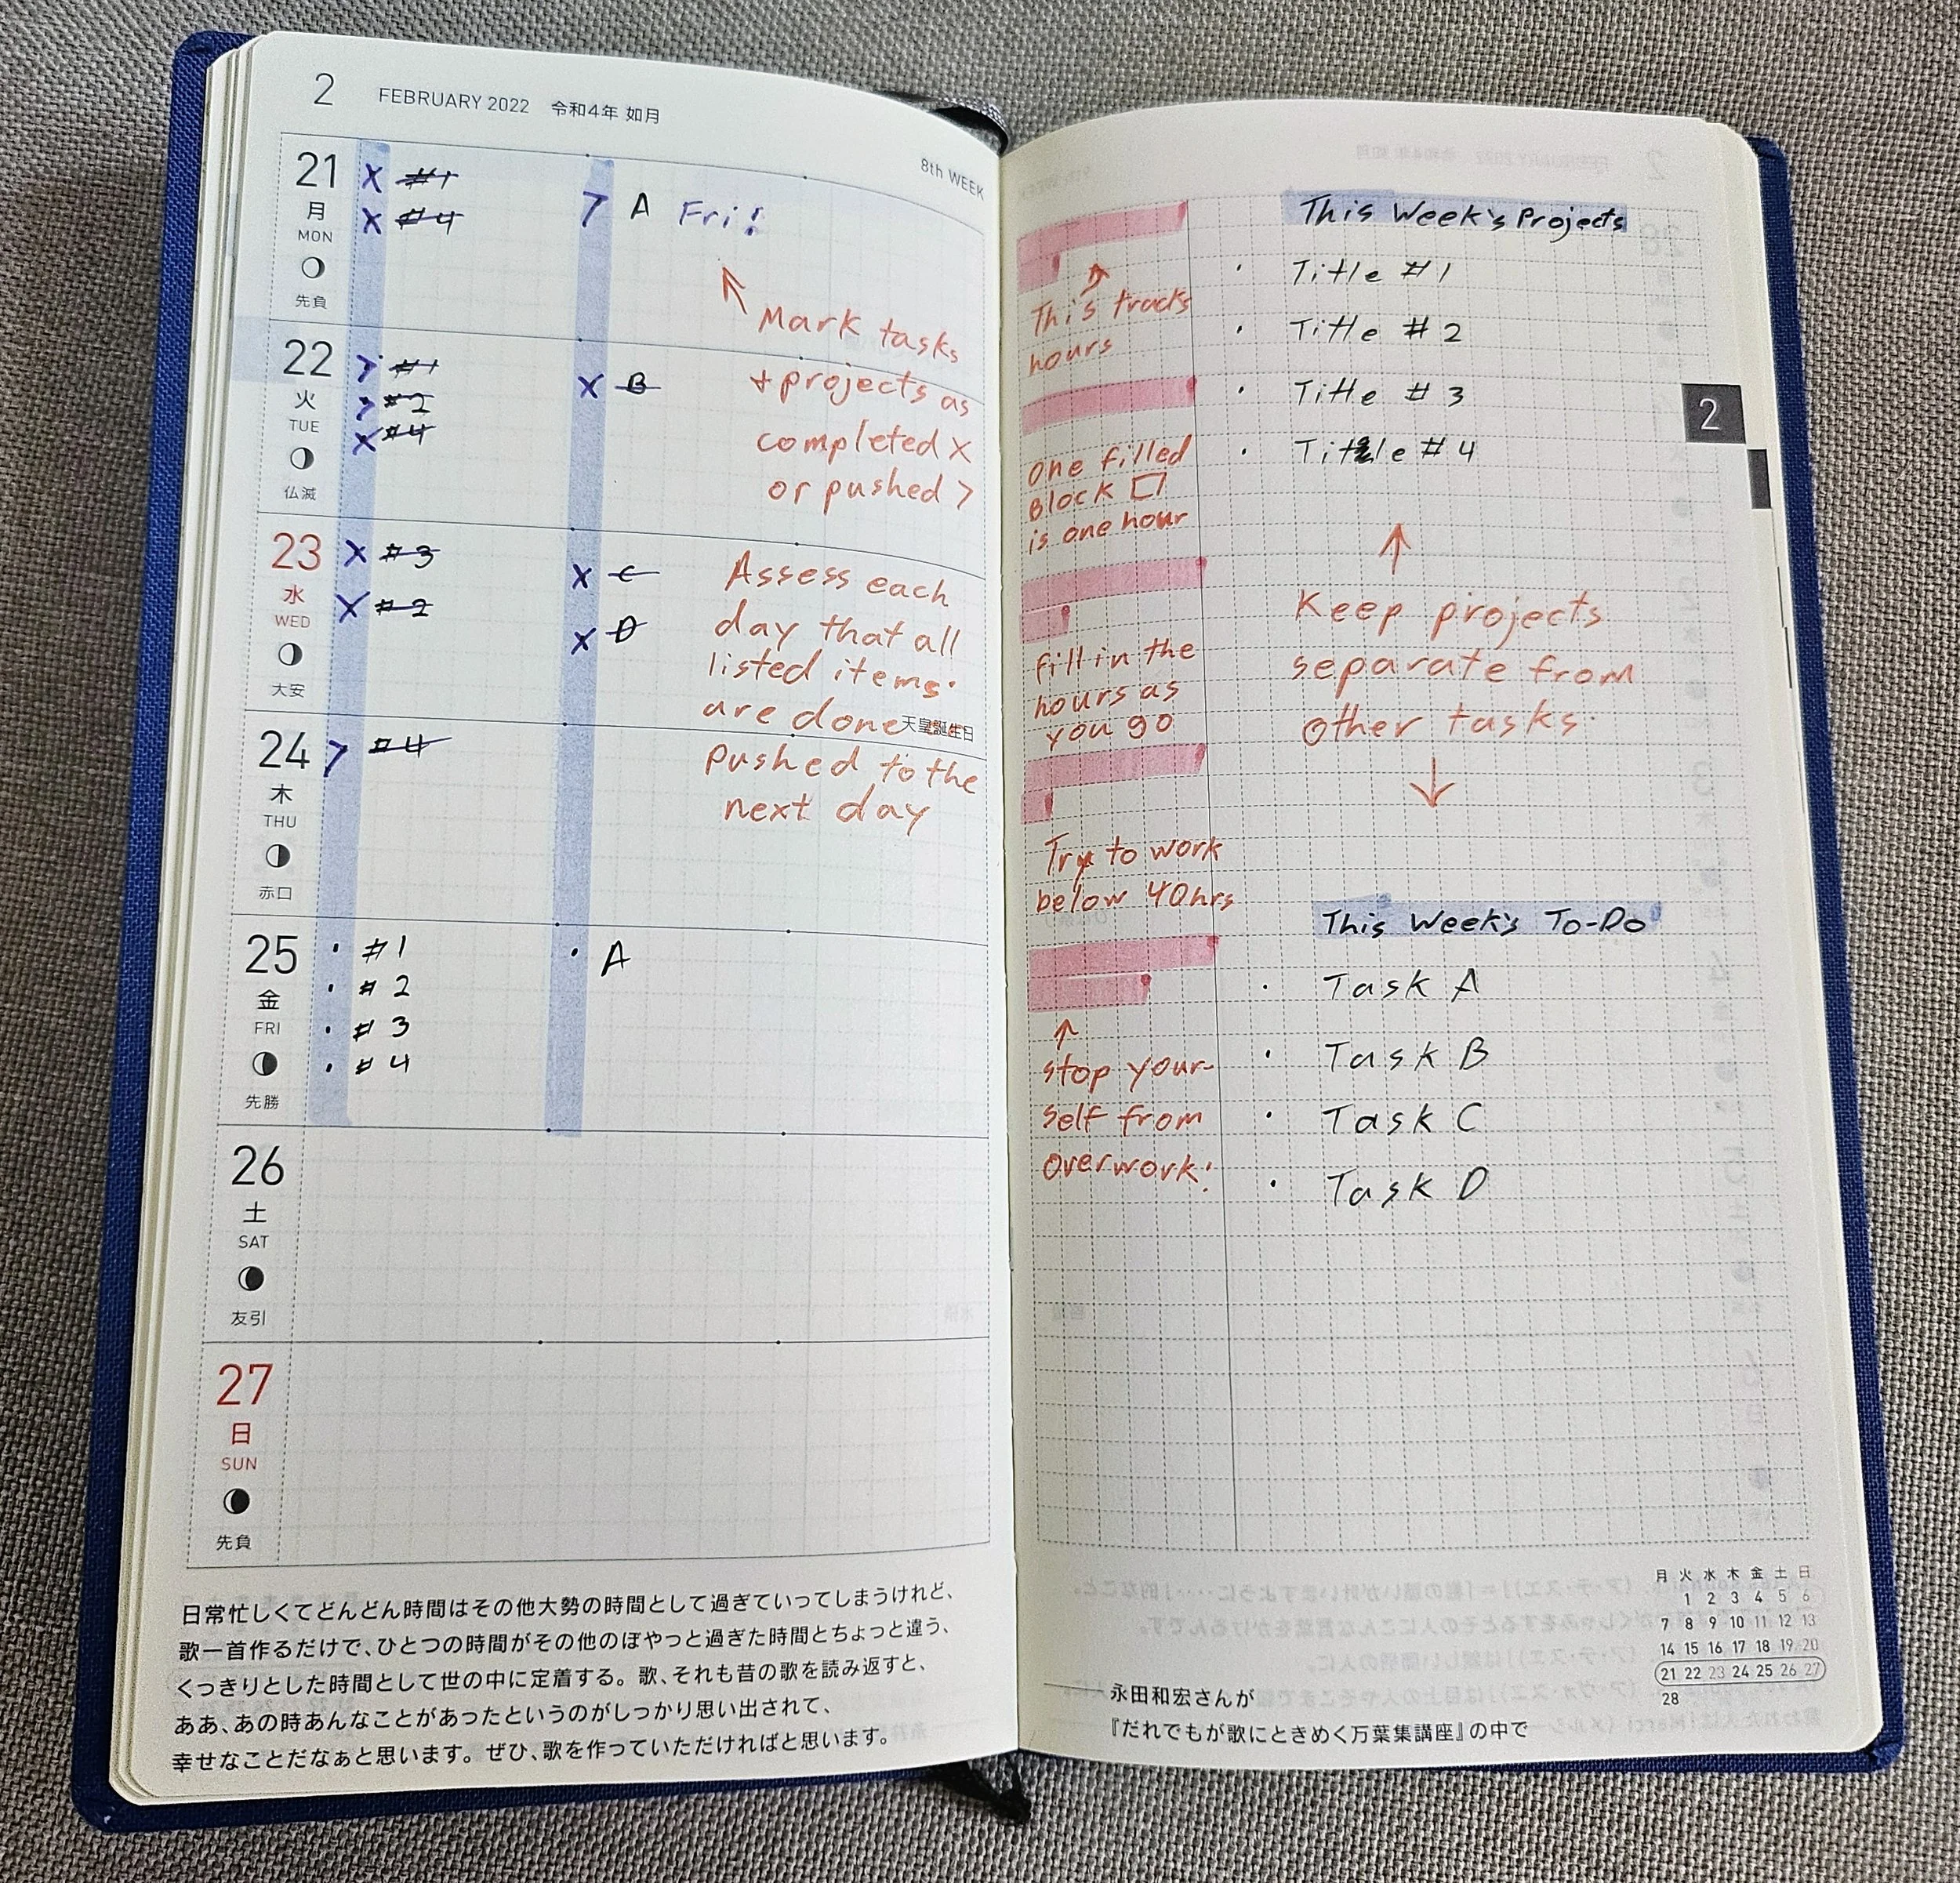 2 FEBRUARY 2022 令和4年 如月
8th WEEK
21 月 MON 先負
X #1
X #4
> A Fri!
Mark tasks
+ projects as
completed X
or pushed >
22 火 TUE 仏滅
> #1
> #2
X #4
X B
23 水 WED 大安
X #3
X #2
X C
X D
Assess each
day that all
listed items
are done
天皇誕生日
pushed to the
next day
24 木 THU 赤口
> #4
25 金 FRI 先勝
· #1
· #2
· #3
· #4
· A
26 土 SAT 友引
27 日 SUN 先負
日常忙しくてどんどん時間はその他大勢の時間として過ぎていってしまうけれど、
歌一首作るだけで、ひとつの時間がその他のぼやっと過ぎた時間とちょっと違う、
くっきりとした時間として世の中に定着する。歌、それも昔の歌を読み返すと、
ああ、あの時あんなことがあったというのがしっかり思い出されて、
幸せなことだなぁと思います。ぜひ、歌を作っていただければと思います。
This tracks
hours
One filled
Block
is one hour
fill in the
hours as
you go
Try to work
below 40hrs
stop your-
self from
overwork!
This Week's Projects
· Title #1
· Title #2
· Title #3
· Title #4
Keep projects
separate from
other tasks
This Week's To-Do
· Task A
· Task B
· Task C
· Task D
2
月 火 水 木 金 土 日
1 2 3 4 5 6
7 8 9 10 11 12 13
14 15 16 17 18 19 20
21 22 23 24 25 26 27
28
永田和宏さんが
『だれでもが歌にときめく万葉集講座』の中で